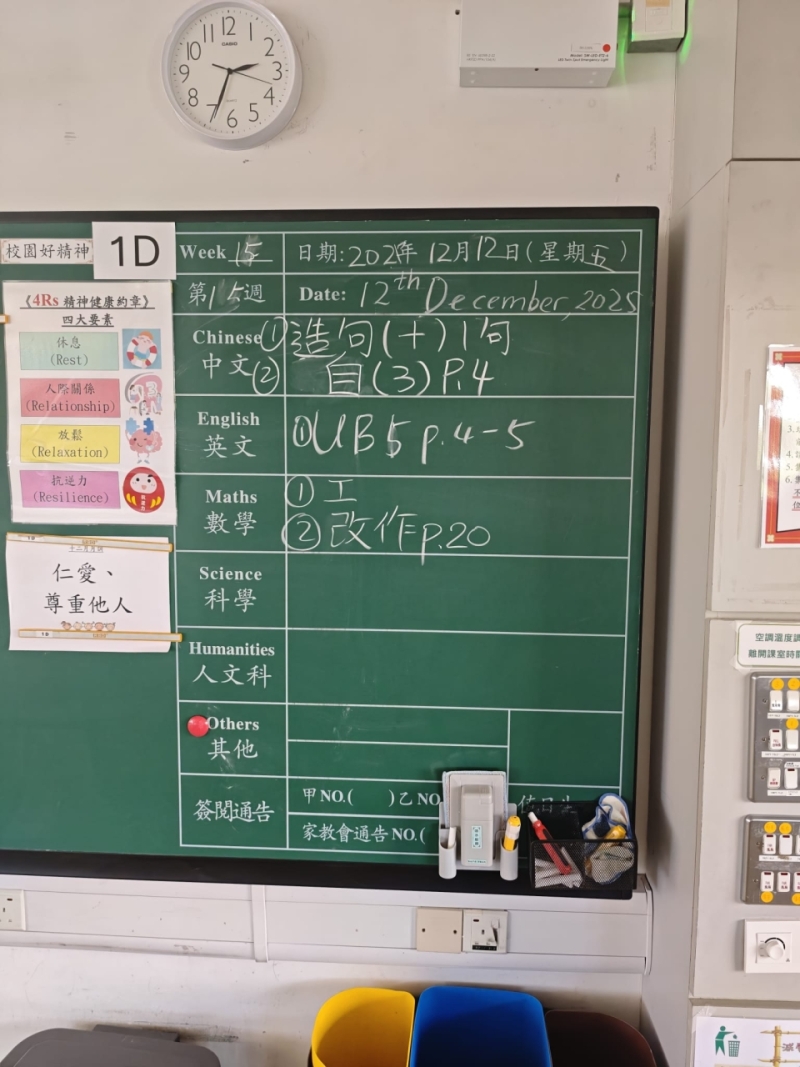 12
1
2
3
4
5
6
7
8
9
10
11
CASIO
校園好精神
1D
Week 15
日期: 2025年 12月12日(星期五)
第15週
Date: 12th December, 2025
《4Rs 精神健康約章》
四大要素
休息
(Rest)
人際關係
(Relationship)
放鬆
(Relaxation)
抗逆力
(Resilience)
Chinese
中文
① 造句(十)1句
② 自(3)P.4
English
英文
① UB5 p.4-5
Maths
數學
① 工
② 改作p.20
Science
科學
Humanities
人文科
Others
其他
簽閱通告
甲NO.( )乙NO
值日生
家教會通告NO.(
1D
仁愛、
尊重他人
1D
3.
4.
5.
6.
空調溫度調
離開課室時關